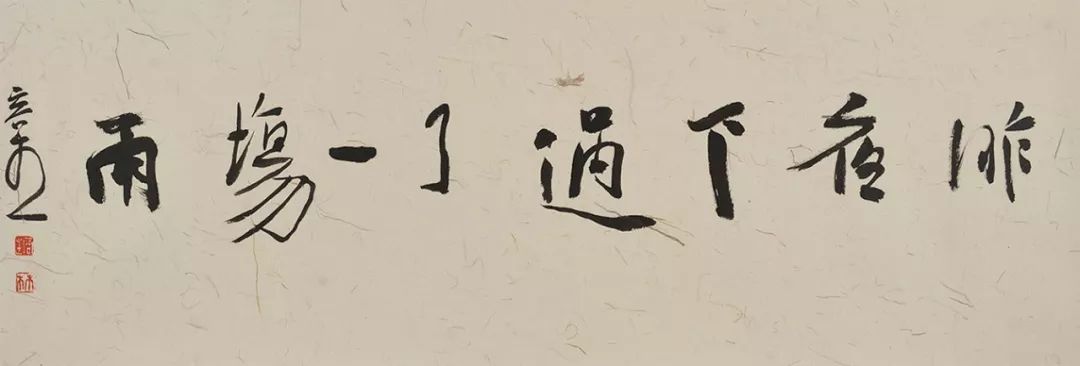 昨夜下過了一場雨